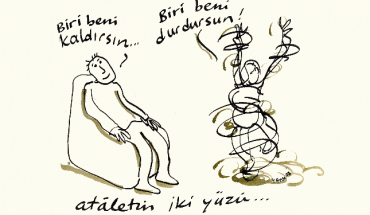 Biri beni
kaldırsın...
Biri beni
durdursun!
atâletin iki yüzü...